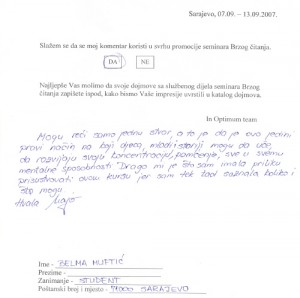 Sarajevo, 07.09. – 13.09.2007.
Slažem se da se moj komentar koristi u svrhu promocije seminara Brzog čitanja.
DA NE
Najljepše Vas molimo da svoje dojmove sa službenog dijela seminara Brzog
čitanja zapišete ispod, kako bismo Vaše impresije uvrstili u katalog dojmova.
In Optimum team
Mogu reći samo jednu stvar, a to je da je ovo jedini
pravi način na koji djeca, mladi i stariji mogu da uče,
da razvijaju svoju koncentraciju, pamćenje, sve u svemu
mentalne sposobnosti. Drago mi je što sam imala priliku
prisustvovati ovom kursu jer sam tek sad saznala koliko i
šta mogu.
Hvala
Ime - BELMA MUFTIĆ
Prezime -
Zanimanje - STUDENT
Poštanski broj i mjesto - 71000 SARAJEVO